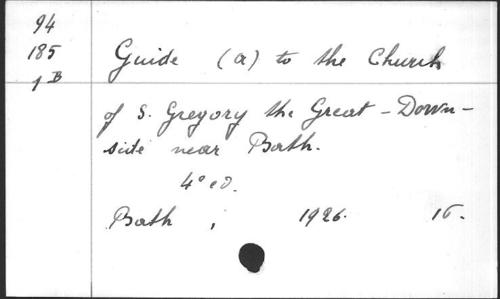 94
185
1 B
Guide (a) to the Church
of S. Gregory the Great - Down-
side near Bath.
4° ed.
Bath, 1926. 16.